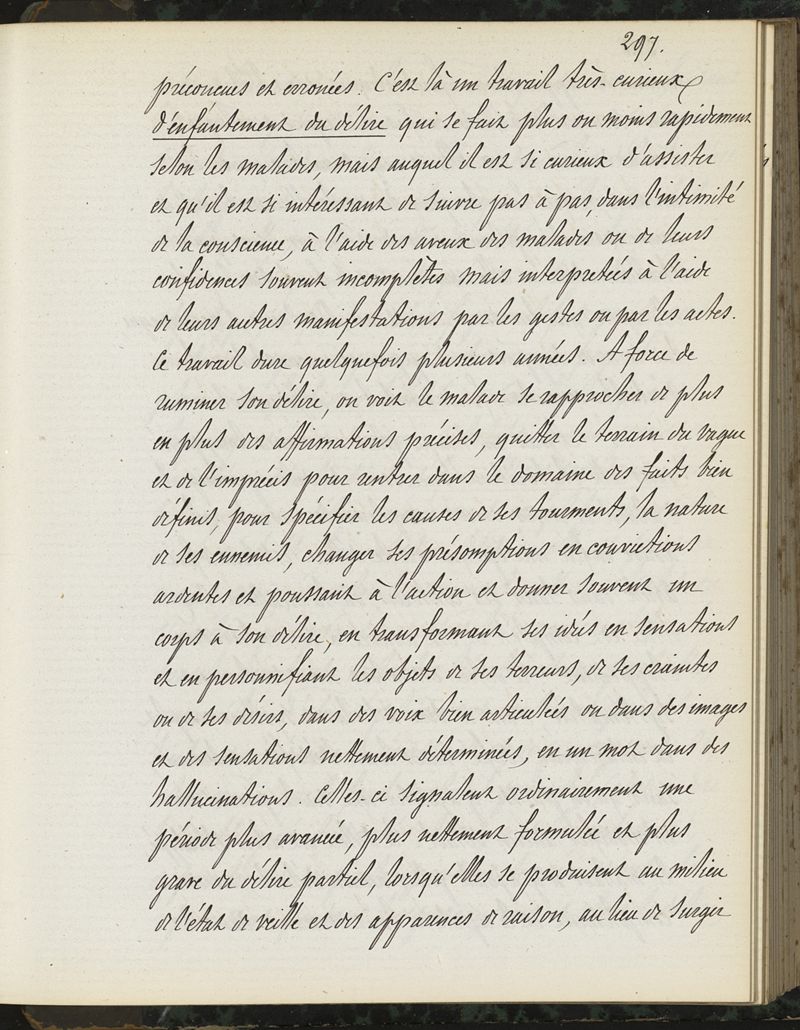 297.
préconçues et erronées. C'est là un travail très-curieux
d'enfantement du délire qui se fait plus ou moins rapidement
selon les malades, mais auquel il est si curieux d'assister
et qu'il est si intéressant de suivre pas à pas, dans l'intimité
de la conscience, à l'aide des aveux des malades ou de leurs
confidences souvent incomplètes mais interpretées à l'aide
de leurs autres manifestations par les gestes ou par les actes.
Ce travail dure quelquefois plusieurs années. A force de
ruminer son délire, on voit le malade se rapprocher de plus
en plus des affirmations précises, quitter le terrain du vague
et de l'imprécis pour rentrer dans le domaine des faits bien
définis, pour spécifier les causes de ses tourments, la nature
de ses ennemis, changer ses présomptions en convictions
ardentes et poussant à l'action et donner souvent un
corps à son délire, en transformant ses idées en sensations
et en personnifiant les objets de ses terreurs, de ses craintes
ou de ses désirs, dans des voix bien articulées ou dans des images
et des sensations nettement déterminées, en un mot dans des
hallucinations. Celles-ci signalent ordinairement une
période plus avancée, plus nettement formulée et plus
grave du délire partiel, lorsqu'elles se produisent au milieu
de l'état de veille et des apparences de raison, au lieu de surgir